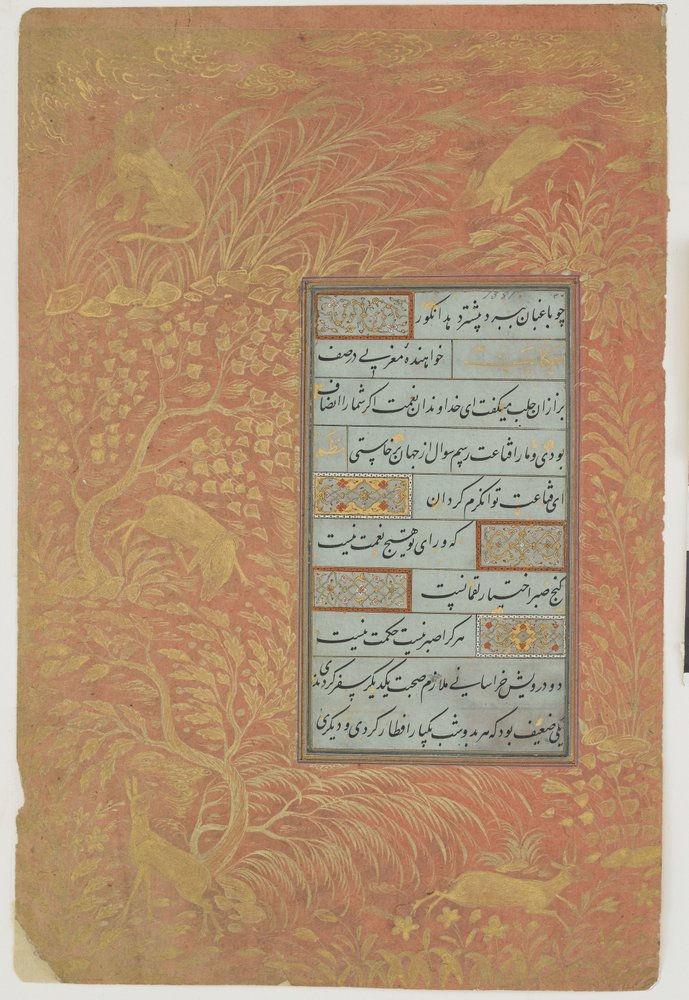 چو باغبان ببرد بیشتر دهد انکور
حکایت خواهندهٔ مغربی در صف
بزازان حلب میکفت ای خداوندان نعمت اکر شما را انصاف
بودی و ما را قناعت رسم سوال از جهان برخاستی نظم
ای قناعت توانکرم کردان
که ورای تو هیچ نعمت نیست
کنج صبر اختیار لقمانست
هر کرا صبر نیست حکمت نیست
دو درویش خراسانی ملازم صحبت یکدیکر سفر کردندی
یکی ضعیف بود که هر بدو شب یکبار افطار کردی و دیکری